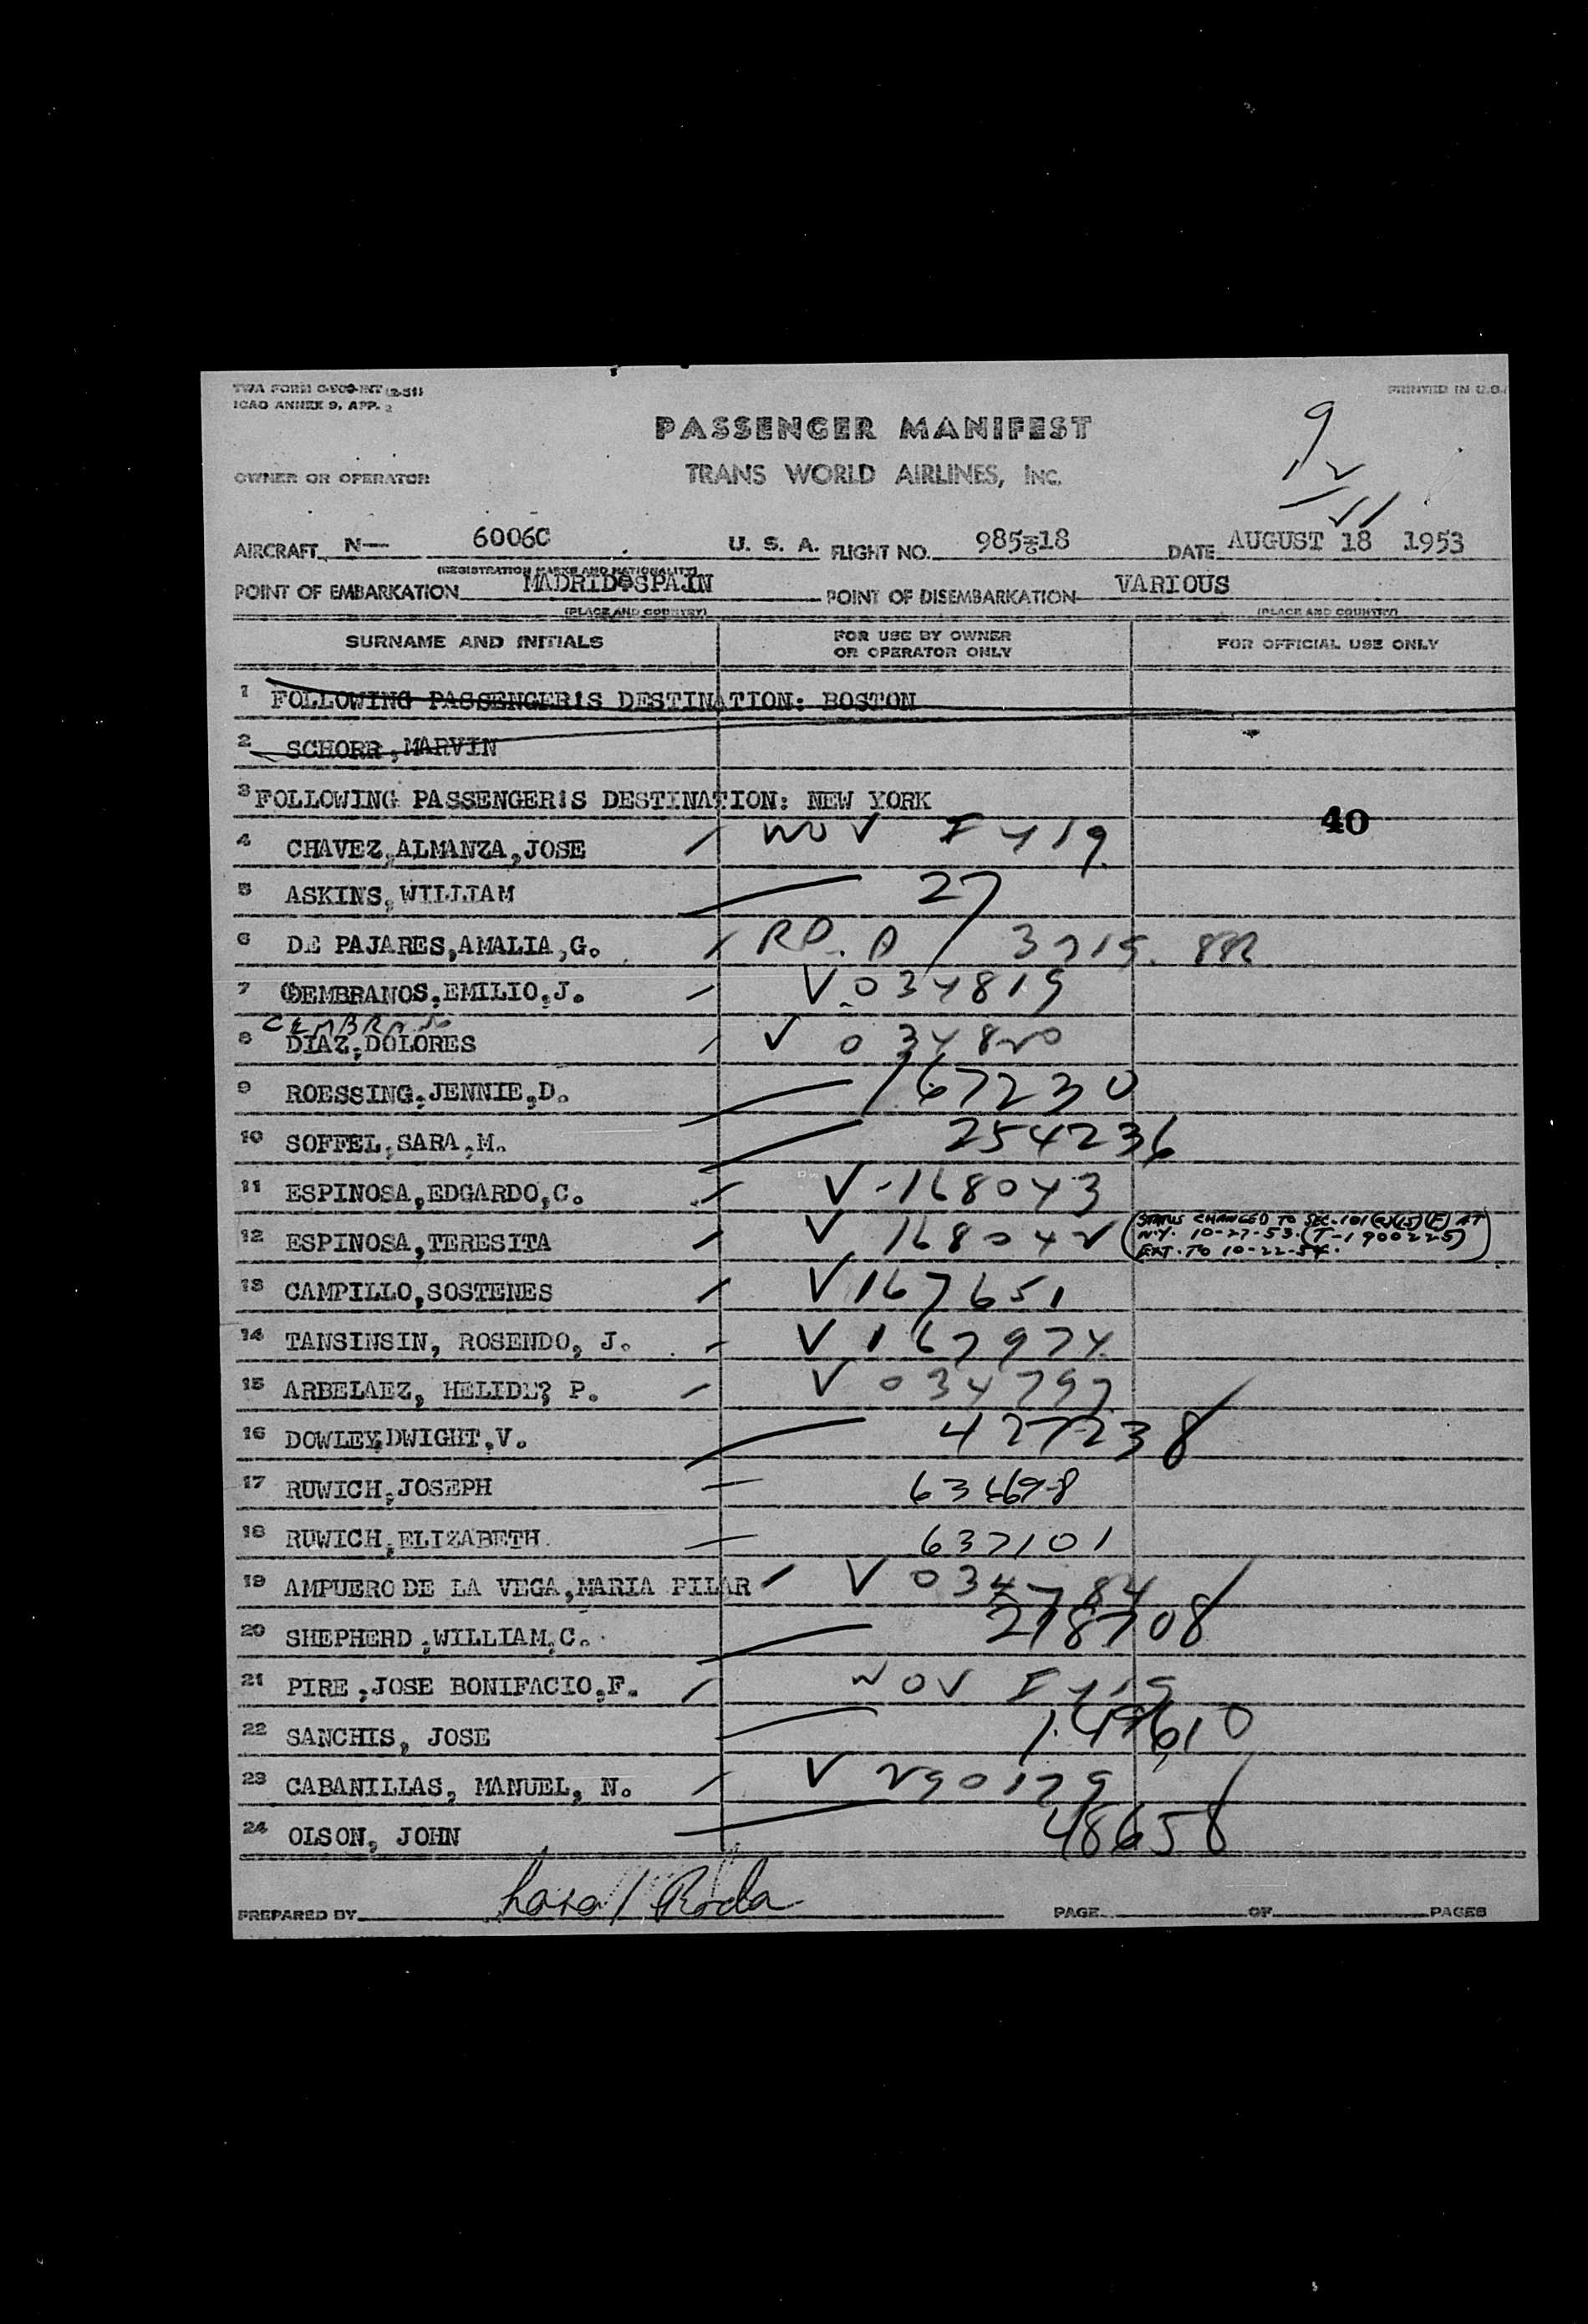 TWA FORM O-800-INT (2-51)
ICAO ANNEX 9, APP. 2
PRINTED IN U.S.
PASSENGER MANIFEST
9
OWNER OR OPERATOR
TRANS WORLD AIRLINES, INC.
AIRCRAFT N— 6006C U. S. A. FLIGHT NO. 985-18 DATE AUGUST 18 1953
(REGISTRATION MARKS AND NATIONALITY)
POINT OF EMBARKATION MADRID SPAIN POINT OF DISEMBARKATION VARIOUS
(PLACE AND COUNTRY) (PLACE AND COUNTRY)
SURNAME AND INITIALS FOR USE BY OWNER OR OPERATOR ONLY FOR OFFICIAL USE ONLY
1 FOLLOWING PASSENGER:S DESTINATION: BOSTON
2 SCHORR,MARVIN
3 FOLLOWING PASSENGER:S DESTINATION: NEW YORK
40
4 CHAVEZ,ALMANZA,JOSE NOV I 419
5 ASKINS,WILLIAM 27
6 DE PAJARES,AMALIA,G. RP. A 3715. 882
7 CEMBRANOS,EMILIO,J. V 034819
CEMBRANO
8 DIAZ,DOLORES V 034820
9 ROESSING,JENNIE,D. 167230
10 SOFFEL,SARA,M. 254236
11 ESPINOSA,EDGARDO,C. V-168043
12 ESPINOSA,TERESITA V 168042 (STATUS CHANGED TO SEC. 101(a)(15)(F) AT
N.Y. 10-27-53. (T-1900225)
EXT. TO 10-22-54.)
13 CAMPILLO,SOSTENES V 167651
14 TANSINSIN, ROSENDO, J. V 167974
15 ARBELAEZ, HELIDE? P. V 034797
16 DOWLEY,DWIGHT,V. 427238
17 RUWICH,JOSEPH
18 RUWICH,ELIZABETH 637101
19 AMPUERO DE LA VEGA,MARIA PILAR V 034784
20 SHEPHERD,WILLIAM,C. 218708
21 PIRE,JOSE BONIFACIO,F. NOV I 419
22 SANCHIS, JOSE
23 CABANILLAS, MANUEL, N. V 290179
24 OLSON, JOHN 48658
PREPARED BY PAGE OF PAGES